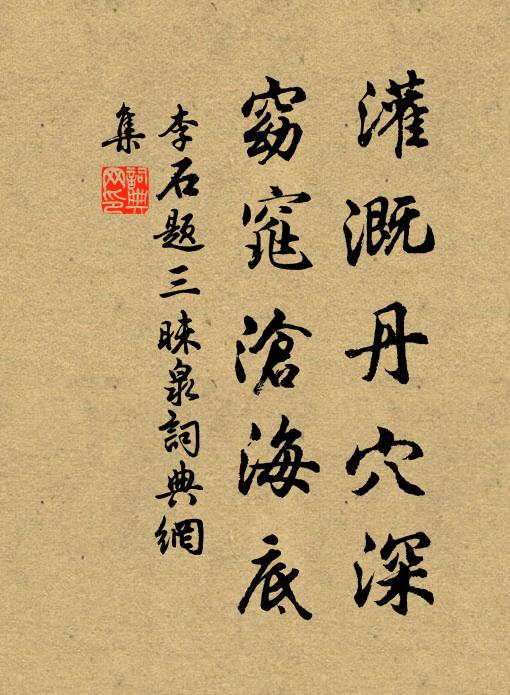 灌溉丹穴深
窈窕滄海底
李石題三昧泉詞典網
集
詞典
网印